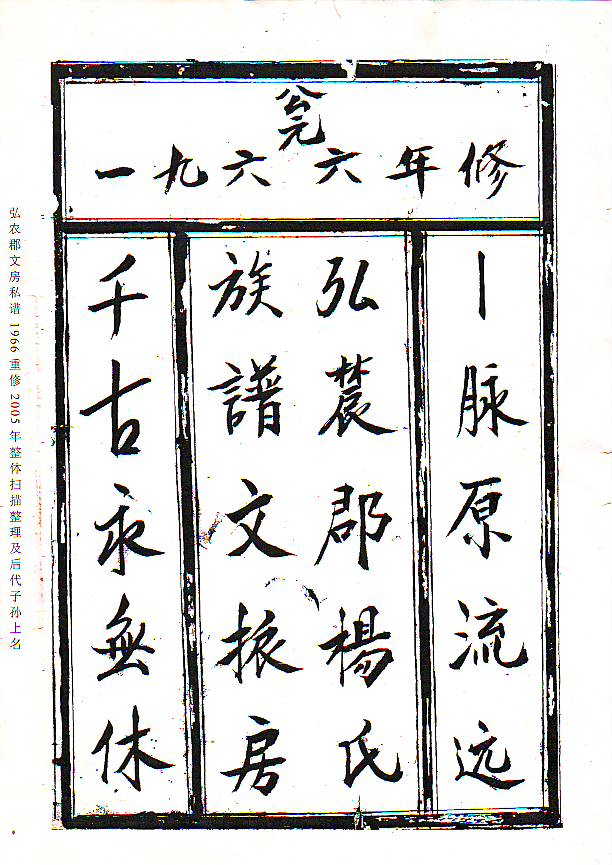 公元
一九六六年修
丨脉原流远
弘辳郡楊氏
族譜文振房
千古永無休
弘农郡文房私谱 1966 重修 2005 年整体扫描整理及后代子孙上名